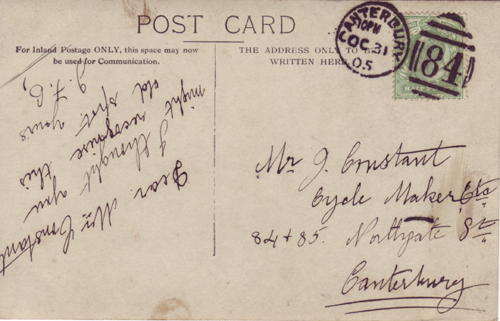 POST CARD
For Inland Postage ONLY, this space may now
be used for Communication.
THE ADDRESS ONLY TO BE
WRITTEN HERE
CANTERBURY
10PM
OC 31
05
184
Dear Mr Constant
I thought you
might recognise this
old spot. Yours
J. F. B,
Mr J. Constant
Cycle Maker Etc
84 & 85. Northgate St
Canterbury